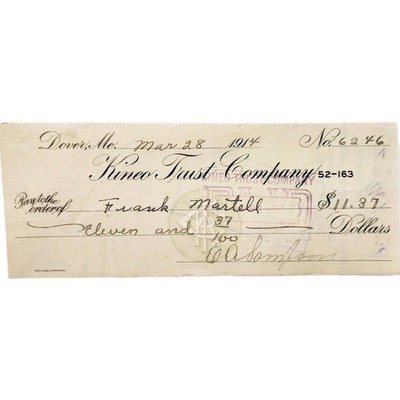 Dover, Me. Mar 28 1914 No. 6246
Kineo Trust Company 52-163
Pay to the order of Frank Martell $11.37
Eleven and 37/100 Dollars
E A Sampson